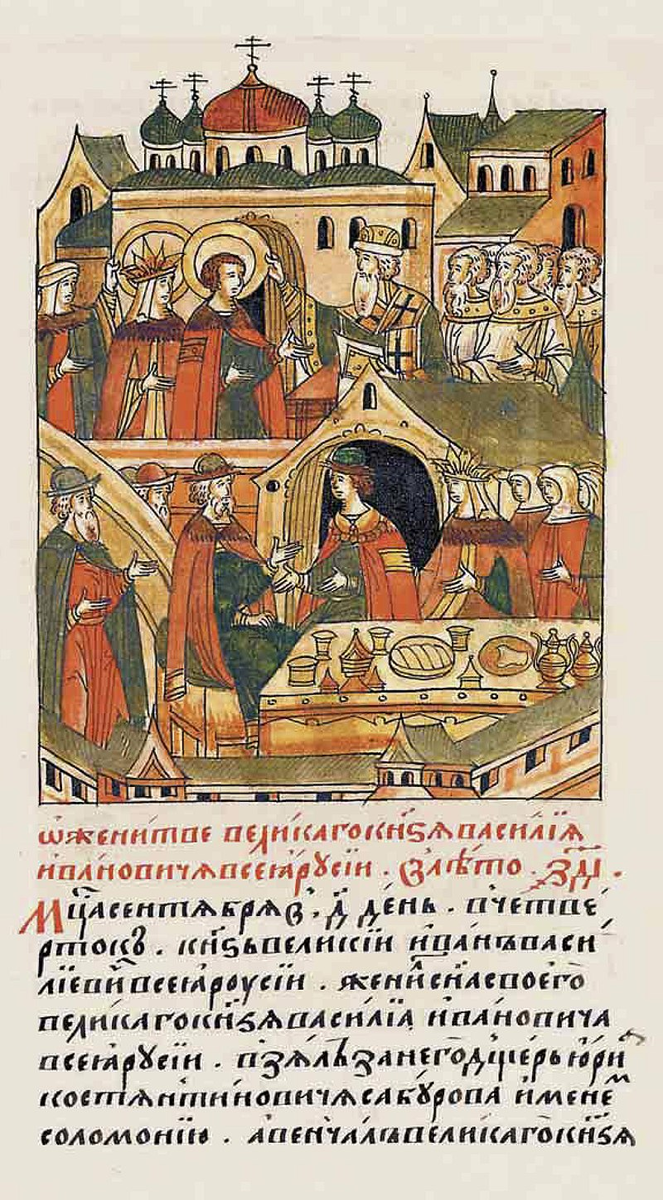 Ѡ женитве великаго кнѕѧ василїѧ
ивановичѧ всеꙗ русїи . в лѣто . ҂здı .
Мцⷭ҇а сентѧбрѧ в . д҃ день . в четве
ртокъ . кнѕь великїи иванъ васи
лїевич всеꙗ роусїи . жени сн҃а своего
великаго кнѕѧ василїѧ ивановича
всеꙗ русїи . взѧлъ за него дщерь юрїи
костѧнтиновичѧ сабурова именеⷨ
соломонїю . а венчалъ великаго кнѕѧ